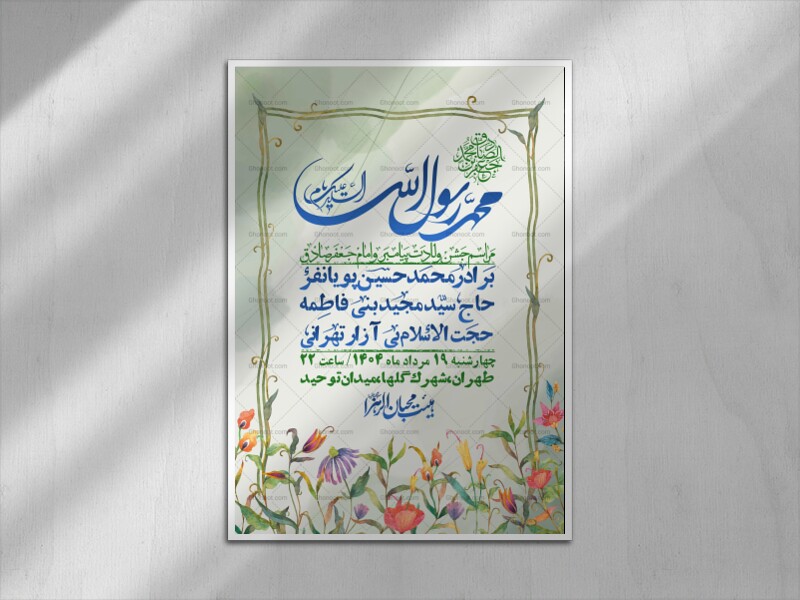 جعفر بن محمد الصادق
محمد رسول الله
مراسم جشن ولادت پیامبر و امام جعفر صادق
برادر محمد حسین پویانفر
حاج سید مجید بنی فاطمه
حجت الاسلام بی آزار تهرانی
چهارشنبه ۱۹ مرداد ماه ۱۴۰۴/ ساعت ۲۲
طهران، شهرک گلها، میدان توحید
هیئت محبان الزهرا
Ghonoot.com